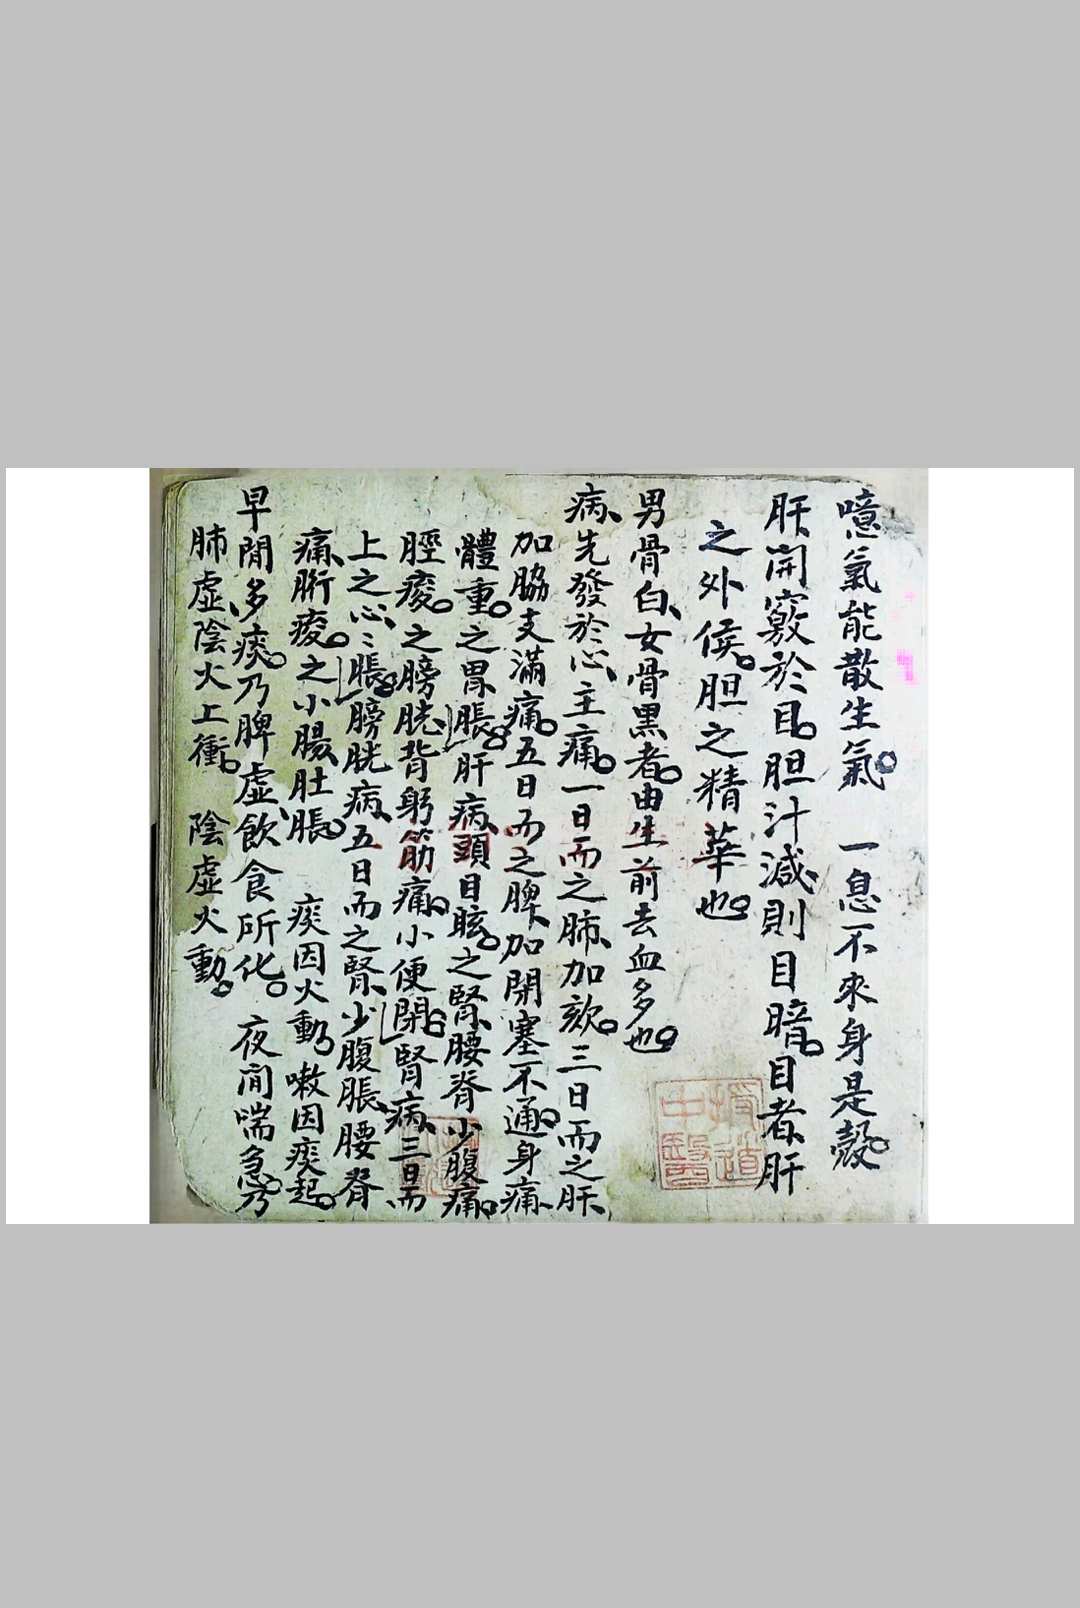 噫氣能散生氣。一息不來身是殼。
肝開竅於目。胆汁減則目暗。目者、肝
之外侯。胆之精華也。
男骨白、女骨黑者。由生前去血多也。
病、先發於心、主痛。一日而之肺、加欬。三日而之肝、
加脇支滿痛。五日而之脾、加閉塞不通。身痛
體重。之胃脹。肝病、頭目眩。之腎、腰脊少腹痛。
脛痠。之膀胱、背䏚筋痛。小便閉。腎病、三日而
上之心、心脹。膀胱病、五日而之腎、少腹脹、腰脊
痛、胻痠。之小腸、肚脹。痰因火動。嗽因痰起。
早間多痰。乃脾虛、飲食所化。夜間喘急。乃
肺虛、陰火上衝。陰虛火動。
授道
中醫